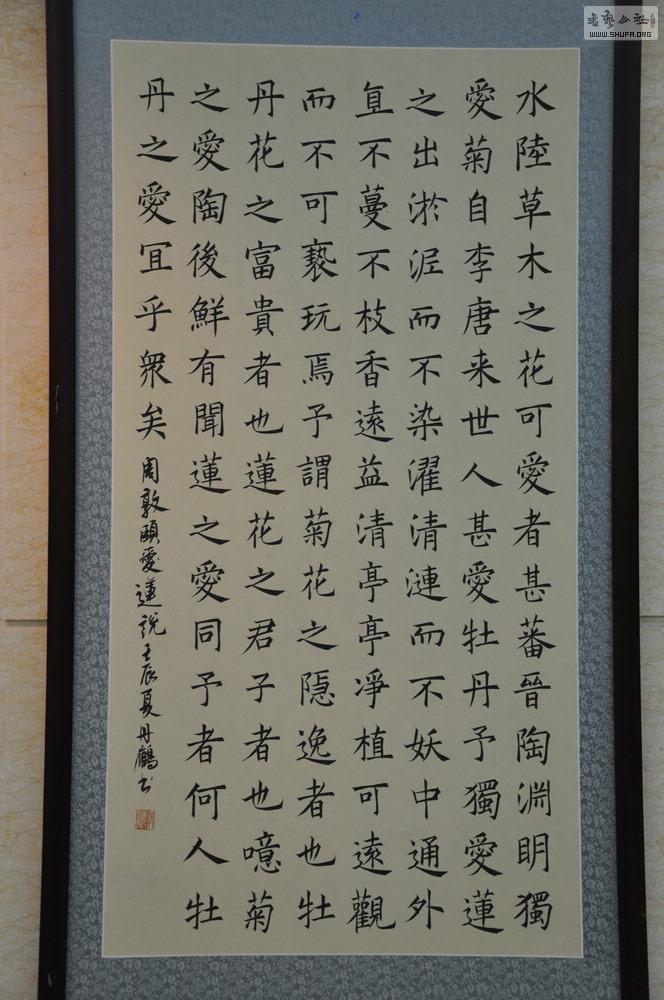 水陸草木之花可愛者甚蕃晉陶淵明獨
愛菊自李唐来世人甚愛牡丹予獨愛蓮
之出淤泥而不染濯清漣而不妖中通外
直不蔓不枝香遠益清亭亭淨植可遠觀
而不可褻玩焉予謂菊花之隱逸者也牡
丹花之富貴者也蓮花之君子者也噫菊
之愛陶後鮮有聞蓮之愛同予者何人牡
丹之愛冝乎衆矣 周敦頤愛蓮說壬辰夏丹鶴书
书藝公社
WWW.SHUFA.ORG